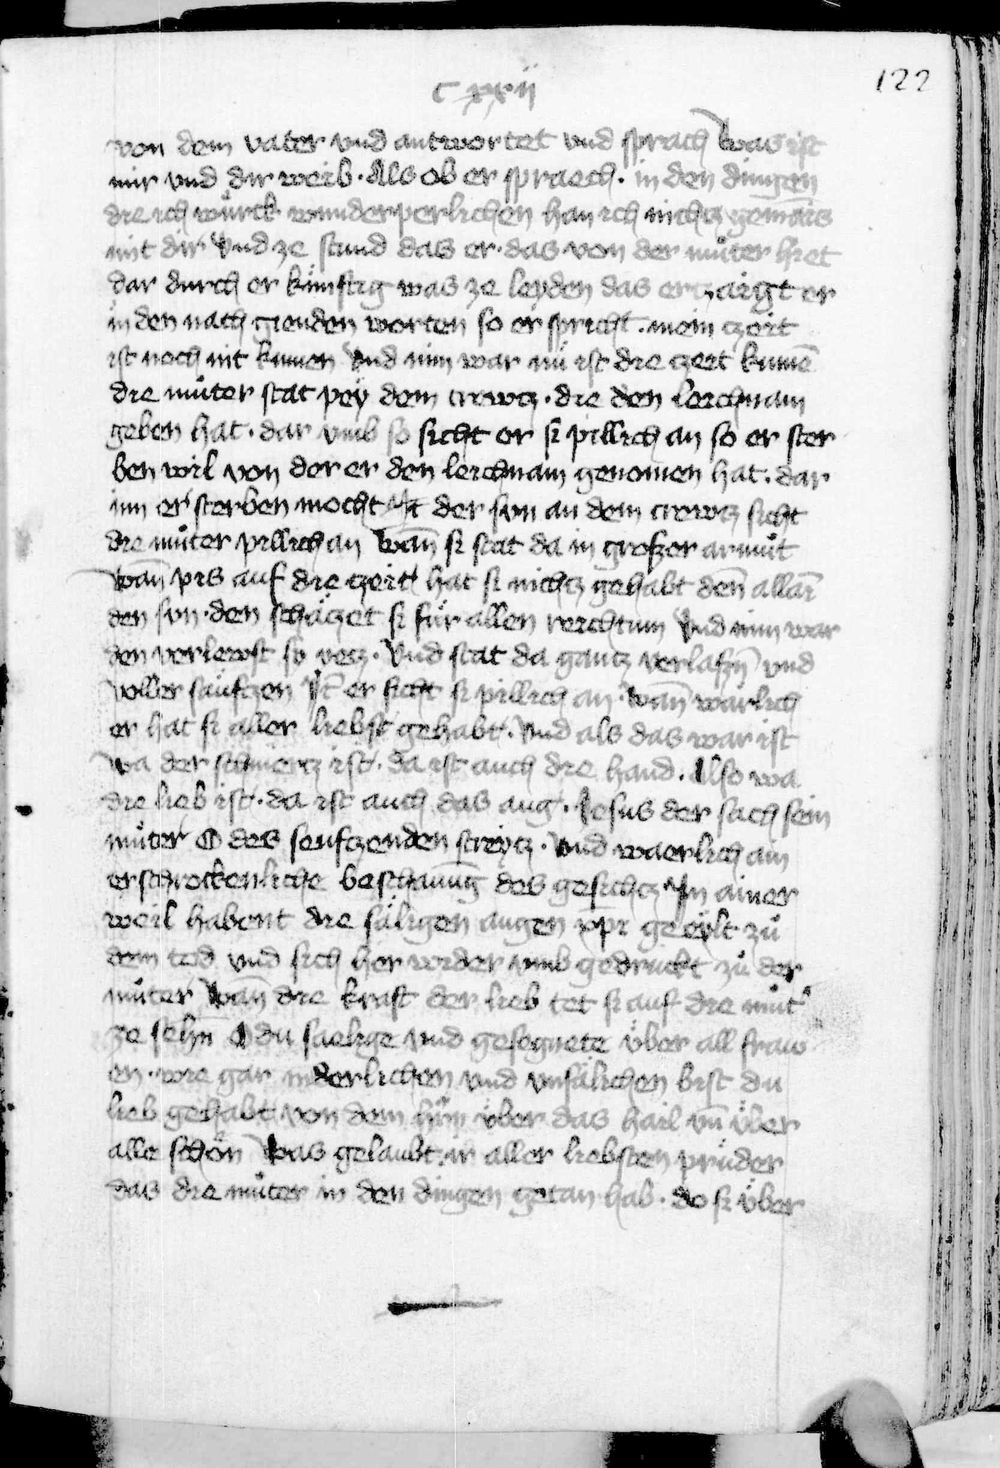 122
C xxii
von dem vater vnd antwortet vnd sprach Was ist
mir vnd dir weib · Als ob er spraech · in den dingen
die ich wuͤrck wunderperlichen han ich nichtz gemains
mit dir Vnd ze stund das er · das von der muͦter hiet
dar durch er kunftig was ze leyden das ertzaigt er
in den nach genden worten so er spricht · mein tzeit
ist noch nit kumen Vnd nim war nu ist die tzeit kumē
die muͦter stat pey dem crewtz · die den leichnam
geben hat · dar vmb so sicht er si pillich an so er ster
ben wil von der er den leichnam genomen hat · dar
inn er sterben mocht It der sun an dem crewtz sicht
die muͦter pillich an Wan̄ si stat da in grozer armuͦt
Wan̄ pis auf die tzeit hat si nichtz gehabt den̄ allaī
den sun · den schätzet si für allen reichtum Vnd nim war
den verlewst si yetz · Vnd stat da gantz verlazn̄ vnd
voller säuftzen It er sicht si pillich an · Wan̄ wärlich
er hat si aller liebst gehabt · Vnd als das war ist
wa der schmertz ist · da ist auch die hand · Also wa
die lieb ist · da ist auch das aug · Jesus der sach sein
muͦter O des seuftzenden streytz · Vnd waerlich ain
erschrockenliche beschauung des gesichtz In ainer
weil habent die säligen augen xpi geeylt zuͦ
dem tod vnd sich her wider vmb gedruckt zuͦ der
muͦter Wan̄ die kraft der lieb tet si auf die muͦt
ze sehn O du saelige vnd gesegnete über all fraw
en · wie gar inderlichen vnd vnsälichen bist du
lieb gehabt von dem sun über das hail vn̄ über
alle schön Was gelaubt ir aller liebsten pruͤder
das die muͦter in den dingen getan hab · do si über